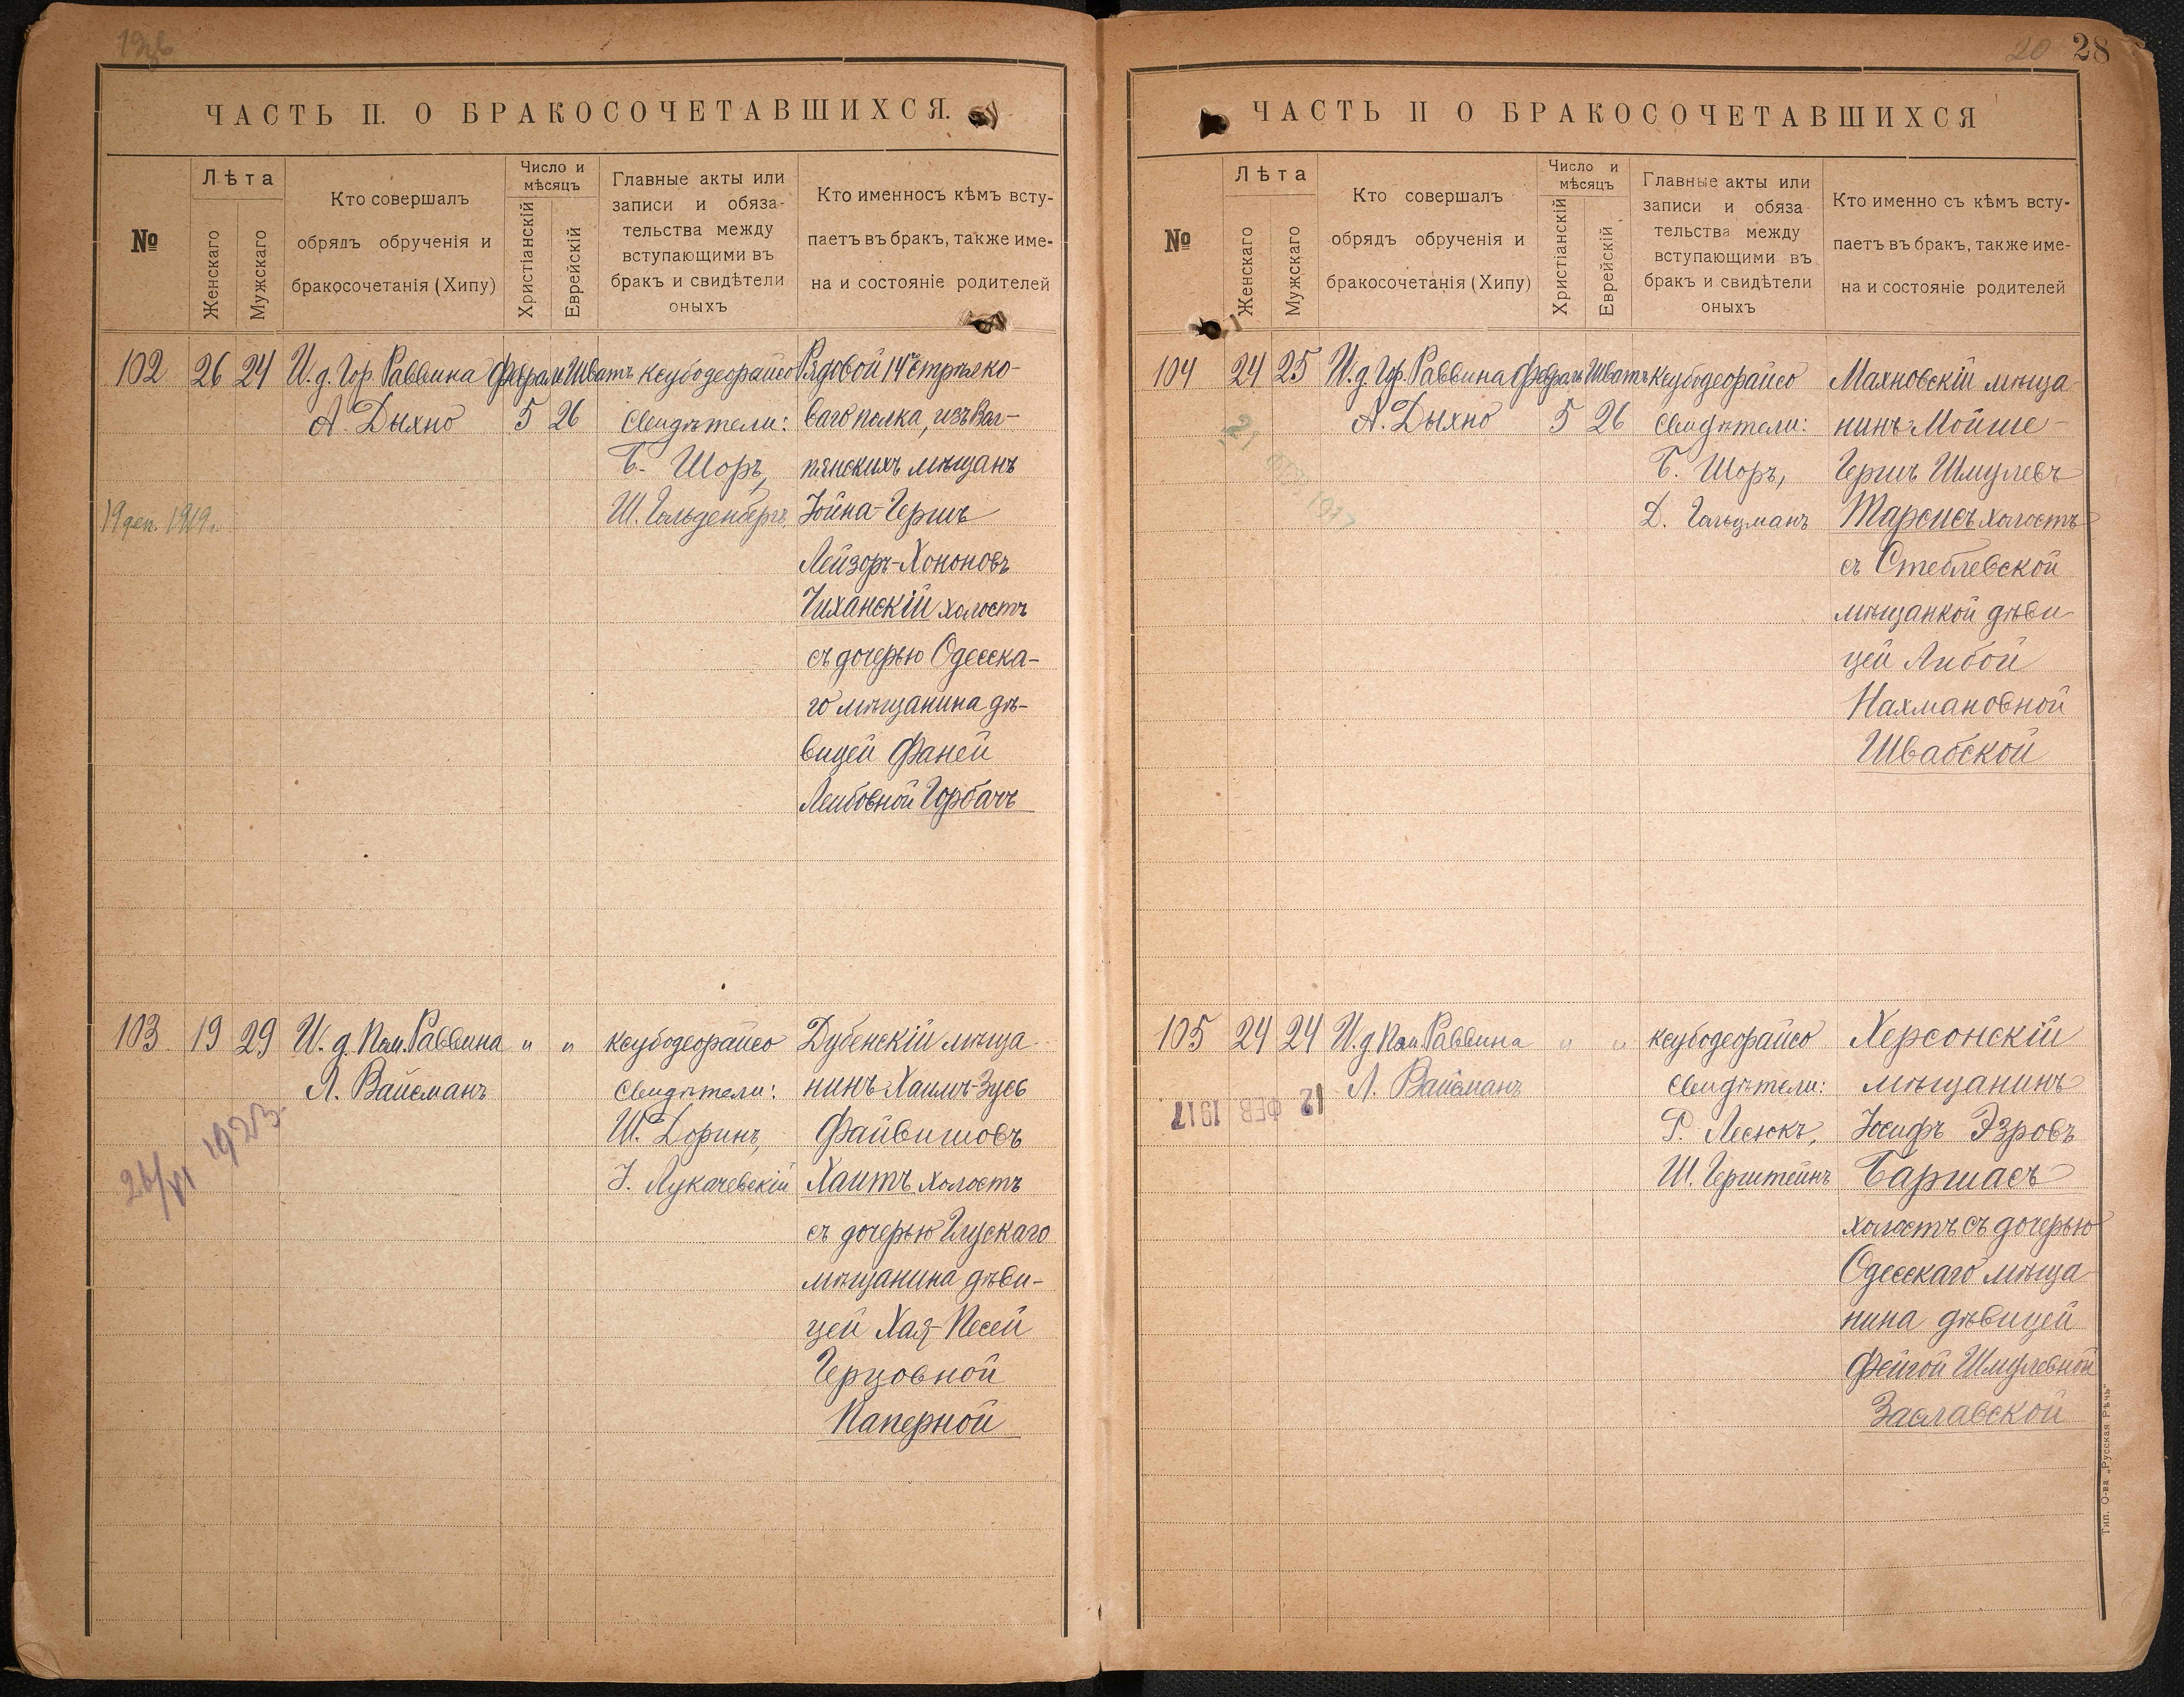 ЧАСТЬ II. О БРАКОСОЧЕТАВШИХСЯ.
№
Лѣта
Женскаго
Мужскаго
Кто совершалъ
обрядъ обрученія и
бракосочетанія (Хипу)
Число и
мѣсяцъ
Христіанскій
Еврейскій
Главные акты или
записи и обяза-
тельства между
вступающими въ
бракъ и свидѣтели
оныхъ
Кто именносъ кѣмъ всту-
паетъ въ бракъ, также име-
на и состояніе родителей
102 26 24
И. д. Гор. Раввина
А. Дыхно
Февраль Шватъ
5 26
ксубодеорайсо
Свидѣтели:
Б. Шоръ,
Ш. Гольденбергъ
Рядовой 14 стрѣлко-
ваго полка, изъ
мѣщанъ
Іойна-Гершъ
Лейзоръ-Хононовъ
Чиханскій холостъ
съ дочерью Одесска-
го мѣщанина дѣ-
вицей Фаней
Лейбовной Горбачъ
19 деп. 1919 г.
103 19 29
И. д. Пом. Раввина
Л. Вайсманъ
" "
ксубодеорайсо
Свидѣтели:
Ш. Доринъ,
І. Лукачевскій
Дубенскій мѣща
нинъ Хаимъ-Зусь
Файвишовъ
Хаитъ холостъ
съ дочерью Глускаго
мѣщанина дѣви-
цей Хая-Песей
Герцовной
Паперной
26/VI 1923
20 28
ЧАСТЬ II О БРАКОСОЧЕТАВШИХСЯ
№
Лѣта
Женскаго
Мужскаго
Кто совершалъ
обрядъ обрученія и
бракосочетанія (Хипу)
Число и
мѣсяцъ
Христіанскій
Еврейскій
Главные акты или
записи и обяза
тельства между
вступающими въ
бракъ и свидѣтели
оныхъ
Кто именно съ кѣмъ всту-
паетъ въ бракъ, также име-
на и состояніе родителей
104 24 25
И. д. Гор. Раввина
А. Дыхно
Февраль Шватъ
5 26
ксубодеорайсо
Свидѣтели:
Б. Шоръ,
Д. Гольцманъ
Махновскій мѣща
нинъ Мойше-
Гершъ Шмулевъ
Тарсисъ холостъ
съ Стеблевской
мѣщанкой дѣви
цей Либой
Нахмановной
Швабской
21 ФЕВ 1917
105 24 24
И. д. Пом. Раввина
Л. Вайсманъ
" "
ксубодеорайсо
Свидѣтели:
Р. Лесюкъ,
Ш. Герштейнъ
Херсонскій
мѣщанинъ
Іосифъ Эзровъ
Баршасъ
холостъ съ дочерью
Одесскаго мѣща
нина дѣвицей
Фейгой Шмулевной
Заславской
12 ФЕВ 1917
Тип. О-ва „Русская Рѣчь"